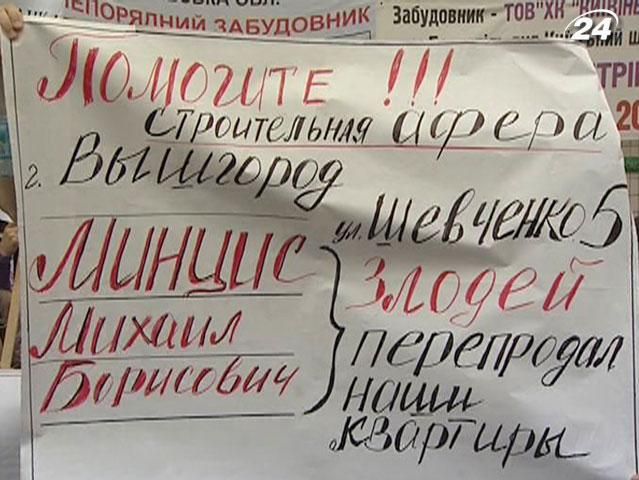 ЗАБУДОВНИК
Забудовник - ТОВ"ХК "
24
20
Помогите !!!
строительная афера
г. Вышгород
ул. Шевченко 5
Минцис
Михаил
Борисович
Злодей
перепродал
наши
квартиры